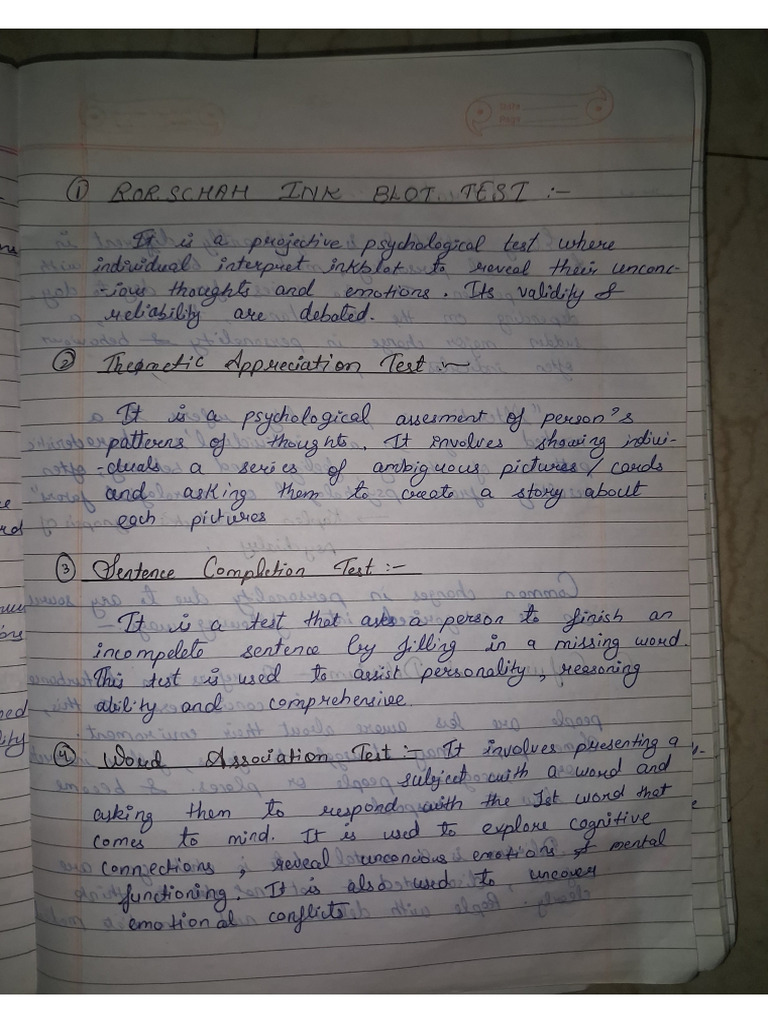 ① RORSCHAH INK BLOT TEST :-
It is a projective psychological test where
individual interpret inkblot to reveal their unconc-
-ious thoughts and emotions. Its validity &
reliability are debated.
② Thematic Appreciation Test :-
It is a psychological assesment of person's
patterns of thoughts. It involves showing indivi-
-duals a series of ambiguous pictures / cards
and asking them to create a story about
each pictures
③ Sentence Completion Test :-
It is a test that asks a person to finish an
incompelete sentence by filling in a missing word.
This test is used to assist personality, reasoning
ability and comprehensive.
④ Word Association Test :- It involves presenting a
subject with a word and
asking them to respond with the 1st word that
comes to mind. It is used to explore cognitive
connections, reveal unconcious emotions & mental
functioning. It is also used to uncover
emotional conflicts